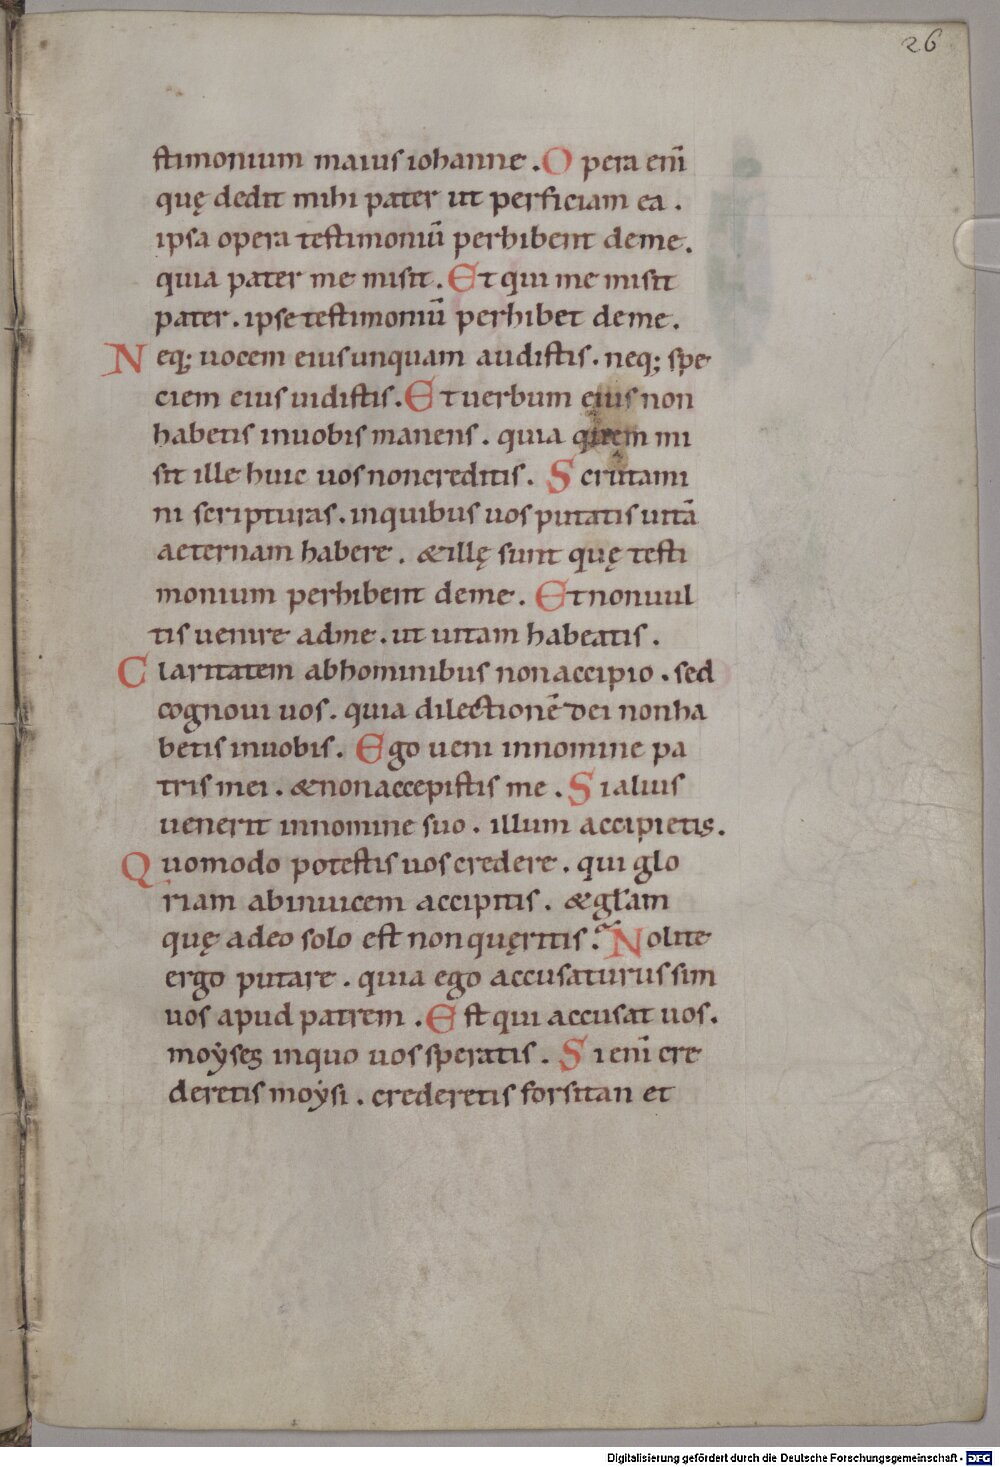 26
stimonium maius iohanne. Opera eni̅
quę dedit mihi pater ut perficiam ea.
ipsa opera testimoniu̅ perhibent deme.
quia pater me misit. Et qui me misit
pater. ipse testimoniu̅ perhibet deme.
Neq; uocem eius unquam audistis. neq; spe
ciem eius uidistis. Et uerbum eius non
habetis inuobis manens. quia quem mi
sit ille huic uos noncreditis. Scrutami
ni scripturas. inquibus uos putatis uita̅
aeternam habere. &illę sunt quę testi
monium perhibent deme. Et nonuul
tis uenire adme. ut uitam habeatis.
Claritatem abhominibus nonaccipio. sed
cognoui uos. quia dilectione̅ dei nonha
betis inuobis. Ego ueni innomine pa
tris mei. &nonaccepistis me. Si alius
uenerit innomine suo. illum accipietis.
Quomodo potestis uos credere. qui glo
riam abinuicem accipitis. &gl̅am
quę adeo solo est nonquęritis? Nolite
ergo putare. quia ego accusaturus sim
uos apud patrem. Est qui accusat uos.
moẏses inquo uos speratis. Si eni̅ cre
deretis moẏsi. crederetis forsitan et
Digitalisierung gefördert durch die Deutsche Forschungsgemeinschaft - DFG